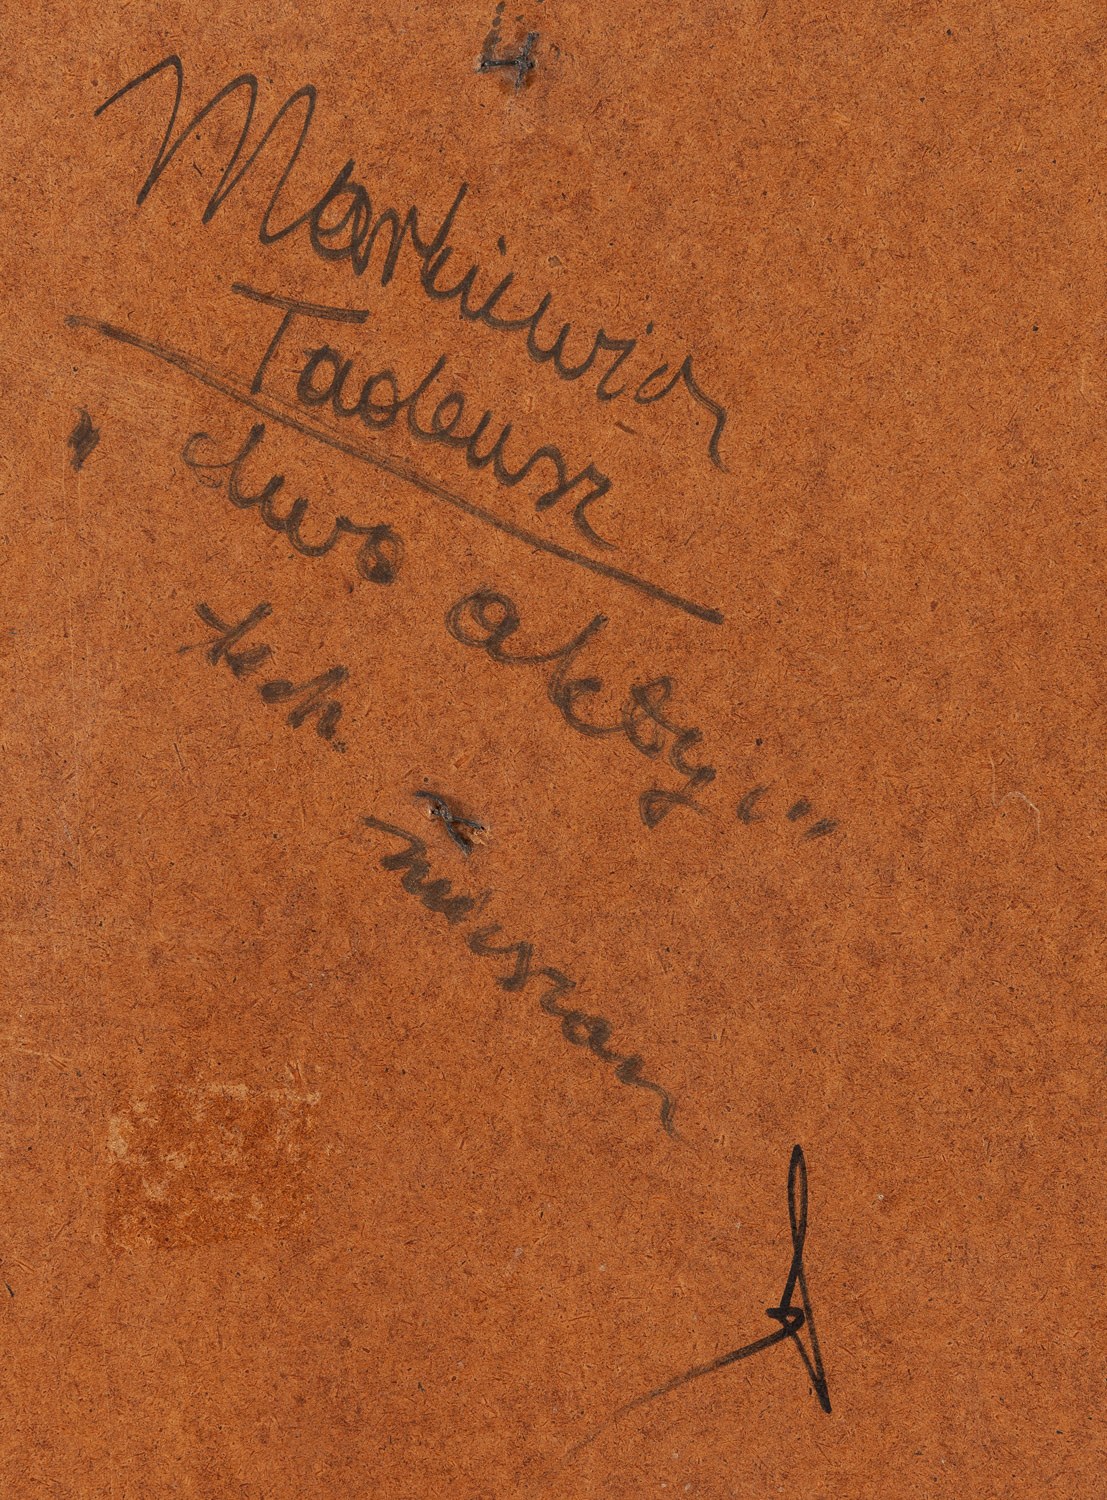 4
Markiewicz
Tadeusz
"dwa akty"
tech
mieszan